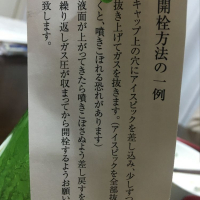 開栓方法の一例
キャップ上の穴にアイスピックを差し込み、少しずつ
抜き上げてガスを抜きます。(アイスピックを全部抜
くと、噴きこぼれる恐れがあります)
液面が上がってきたら噴きこぼさぬよう差し戻すを
繰り返しガス圧が収まってから開栓するようお願い
致します。